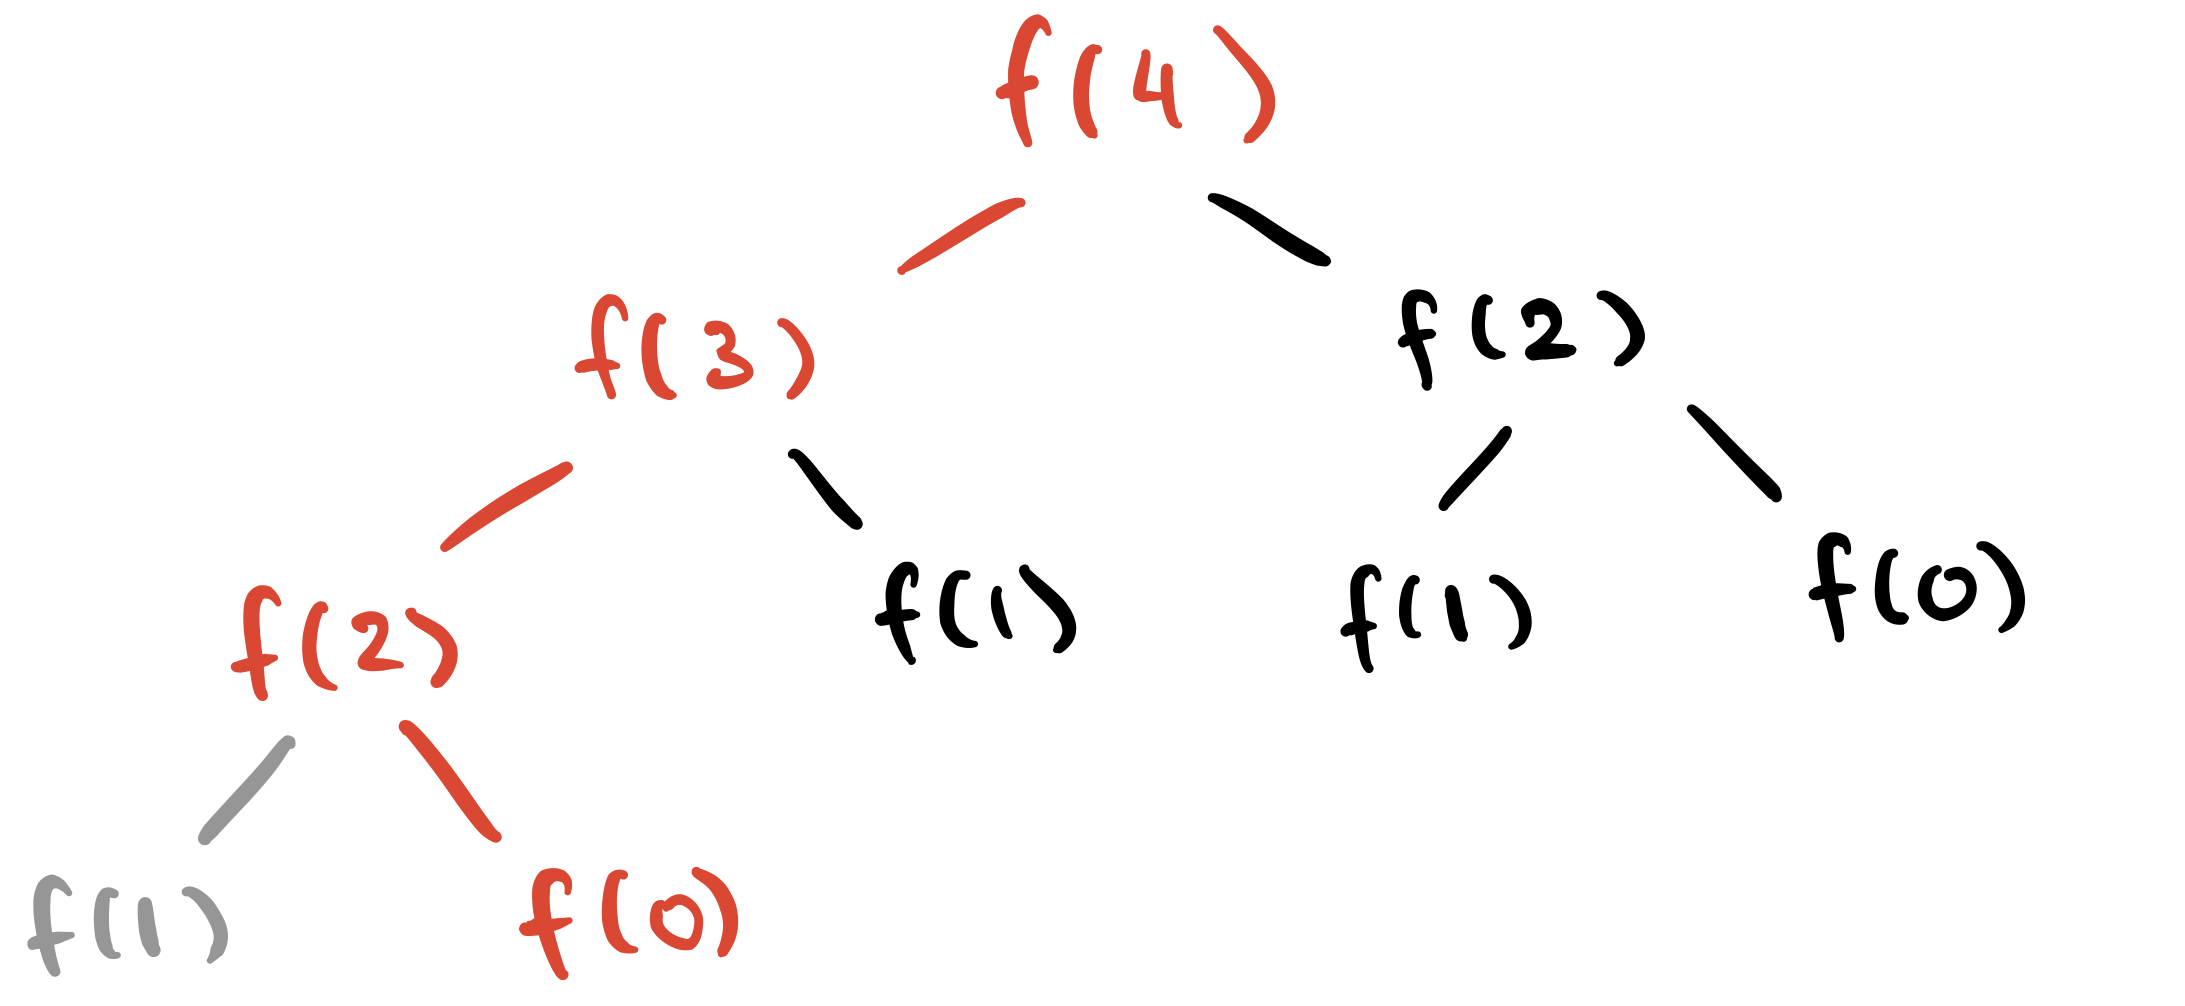 f(4)
f(3)
f(2)
f(2)
f(1)
f(1)
f(0)
f(1)
f(0)